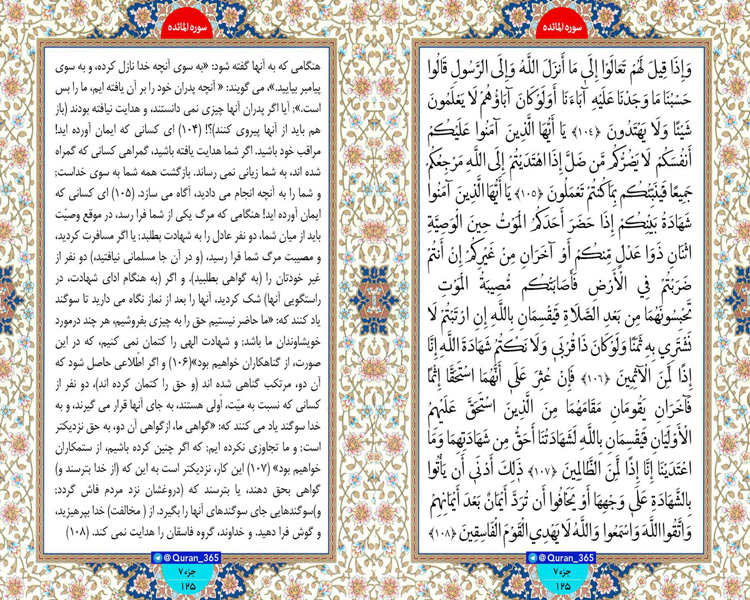 سوره المائده
وَإِذَا قِيلَ لَهُمْ تَعَالَوْا إِلَىٰ مَا أَنزَلَ اللَّهُ وَإِلَى الرَّسُولِ قَالُوا
حَسْبُنَا مَا وَجَدْنَا عَلَيْهِ آبَاءَنَا أَوَلَوْ كَانَ آبَاؤُهُمْ لَا يَعْلَمُونَ
شَيْئًا وَلَا يَهْتَدُونَ ﴿۱۰۴﴾ يَا أَيُّهَا الَّذِينَ آمَنُوا عَلَيْكُمْ
أَنفُسَكُمْ لَا يَضُرُّكُم مَّن ضَلَّ إِذَا اهْتَدَيْتُمْ إِلَى اللَّهِ مَرْجِعُكُمْ
جَمِيعًا فَيُنَبِّئُكُم بِمَا كُنتُمْ تَعْمَلُونَ ﴿۱۰۵﴾ يَا أَيُّهَا الَّذِينَ آمَنُوا
شَهَادَةُ بَيْنِكُمْ إِذَا حَضَرَ أَحَدَكُمُ الْمَوْتُ حِينَ الْوَصِيَّةِ
اثْنَانِ ذَوَا عَدْلٍ مِّنكُمْ أَوْ آخَرَانِ مِنْ غَيْرِكُمْ إِنْ أَنتُمْ
ضَرَبْتُمْ فِي الْأَرْضِ فَأَصَابَتْكُم مُّصِيبَةُ الْمَوْتِ
تَحْبِسُونَهُمَا مِن بَعْدِ الصَّلَاةِ فَيُقْسِمَانِ بِاللَّهِ إِنِ ارْتَبْتُمْ لَا
نَشْتَرِي بِهِ ثَمَنًا وَلَوْ كَانَ ذَا قُرْبَىٰ وَلَا نَكْتُمُ شَهَادَةَ اللَّهِ إِنَّا
إِذًا لَّمِنَ الْآثِمِينَ ﴿۱۰۶﴾ فَإِنْ عُثِرَ عَلَىٰ أَنَّهُمَا اسْتَحَقَّا إِثْمًا
فَآخَرَانِ يَقُومَانِ مَقَامَهُمَا مِنَ الَّذِينَ اسْتَحَقَّ عَلَيْهِمُ
الْأَوْلَيَانِ فَيُقْسِمَانِ بِاللَّهِ لَشَهَادَتُنَا أَحَقُّ مِن شَهَادَتِهِمَا وَمَا
اعْتَدَيْنَا إِنَّا إِذًا لَّمِنَ الظَّالِمِينَ ﴿۱۰۷﴾ ذَٰلِكَ أَدْنَىٰ أَن يَأْتُوا
بِالشَّهَادَةِ عَلَىٰ وَجْهِهَا أَوْ يَخَافُوا أَن تُرَدَّ أَيْمَانٌ بَعْدَ أَيْمَانِهِمْ
وَاتَّقُوا اللَّهَ وَاسْمَعُوا وَاللَّهُ لَا يَهْدِي الْقَوْمَ الْفَاسِقِينَ ﴿۱۰۸﴾
@Quran_365
جزء ۷
۱۲۵
سوره المائده
هنگامی که به آنها گفته شود: «به سوی آنچه خدا نازل کرده، و به سوی
پیامبر بیایید.»، می گویند: « آنچه پدران خود را بر آن یافته ایم، ما را بس
است.»; آیا اگر پدران آنها چیزی نمی دانستند، و هدایت نیافته بودند (باز
هم باید از آنها پیروی کنند)؟! (۱۰۴) ای کسانی که ایمان آورده اید!
مراقب خود باشید. اگر شما هدایت یافته باشید، گمراهی کسانی که گمراه
شده اند، به شما زیانی نمی رساند. بازگشت همه شما به سوی خداست;
و شما را به آنچه انجام می دادید، آگاه می سازد. (۱۰۵) ای کسانی که
ایمان آورده اید! هنگامی که مرگ یکی از شما فرا رسد، در موقع وصیّت
باید از میان شما، دو نفر عادل را به شهادت بطلبد; یا اگر مسافرت کردید،
و مصیبت مرگ شما فرا رسید، (و در آن جا مسلمانی نیافتید) دو نفر از
غیر خودتان را (به گواهی بطلبید). و اگر (به هنگام ادای شهادت، در
راستگویی آنها) شک کردید، آنها را بعد از نماز نگاه می دارید تا سوگند
یاد کنند که: «ما حاضر نیستیم حق را به چیزی بفروشیم، هر چند درمورد
خویشاوندان ما باشد; و شهادت الهی را کتمان نمی کنیم، که در این
صورت، از گناهکاران خواهیم بود»(۱۰۶) و اگر اطّلاعی حاصل شود که
آن دو، مرتکب گناهی شده اند (و حق را کتمان کرده اند)، دو نفر از
کسانی که نسبت به میّت، اولی هستند، به جای آنها قرار می گیرند، و به
خدا سوگند یاد می کنند که: «گواهی ما، ازگواهی آن دو، به حق نزدیکتر
است; و ما تجاوزی نکرده ایم; که اگر چنین کرده باشیم، از ستمکاران
خواهیم بود» (۱۰۷) این کار، نزدیکتر است به این که (از خدا بترسند و)
گواهی بحق دهند، یا بترسند که (دروغشان نزد مردم فاش گردد;
و)سوگندهایی جای سوگندهای آنها را بگیرد. از ( مخالفت) خدا بپرهیزید،
و گوش فرا دهید. و خداوند، گروه فاسقان را هدایت نمی کند. (۱۰۸)
@Quran_365
جزء ۷
۱۲۵